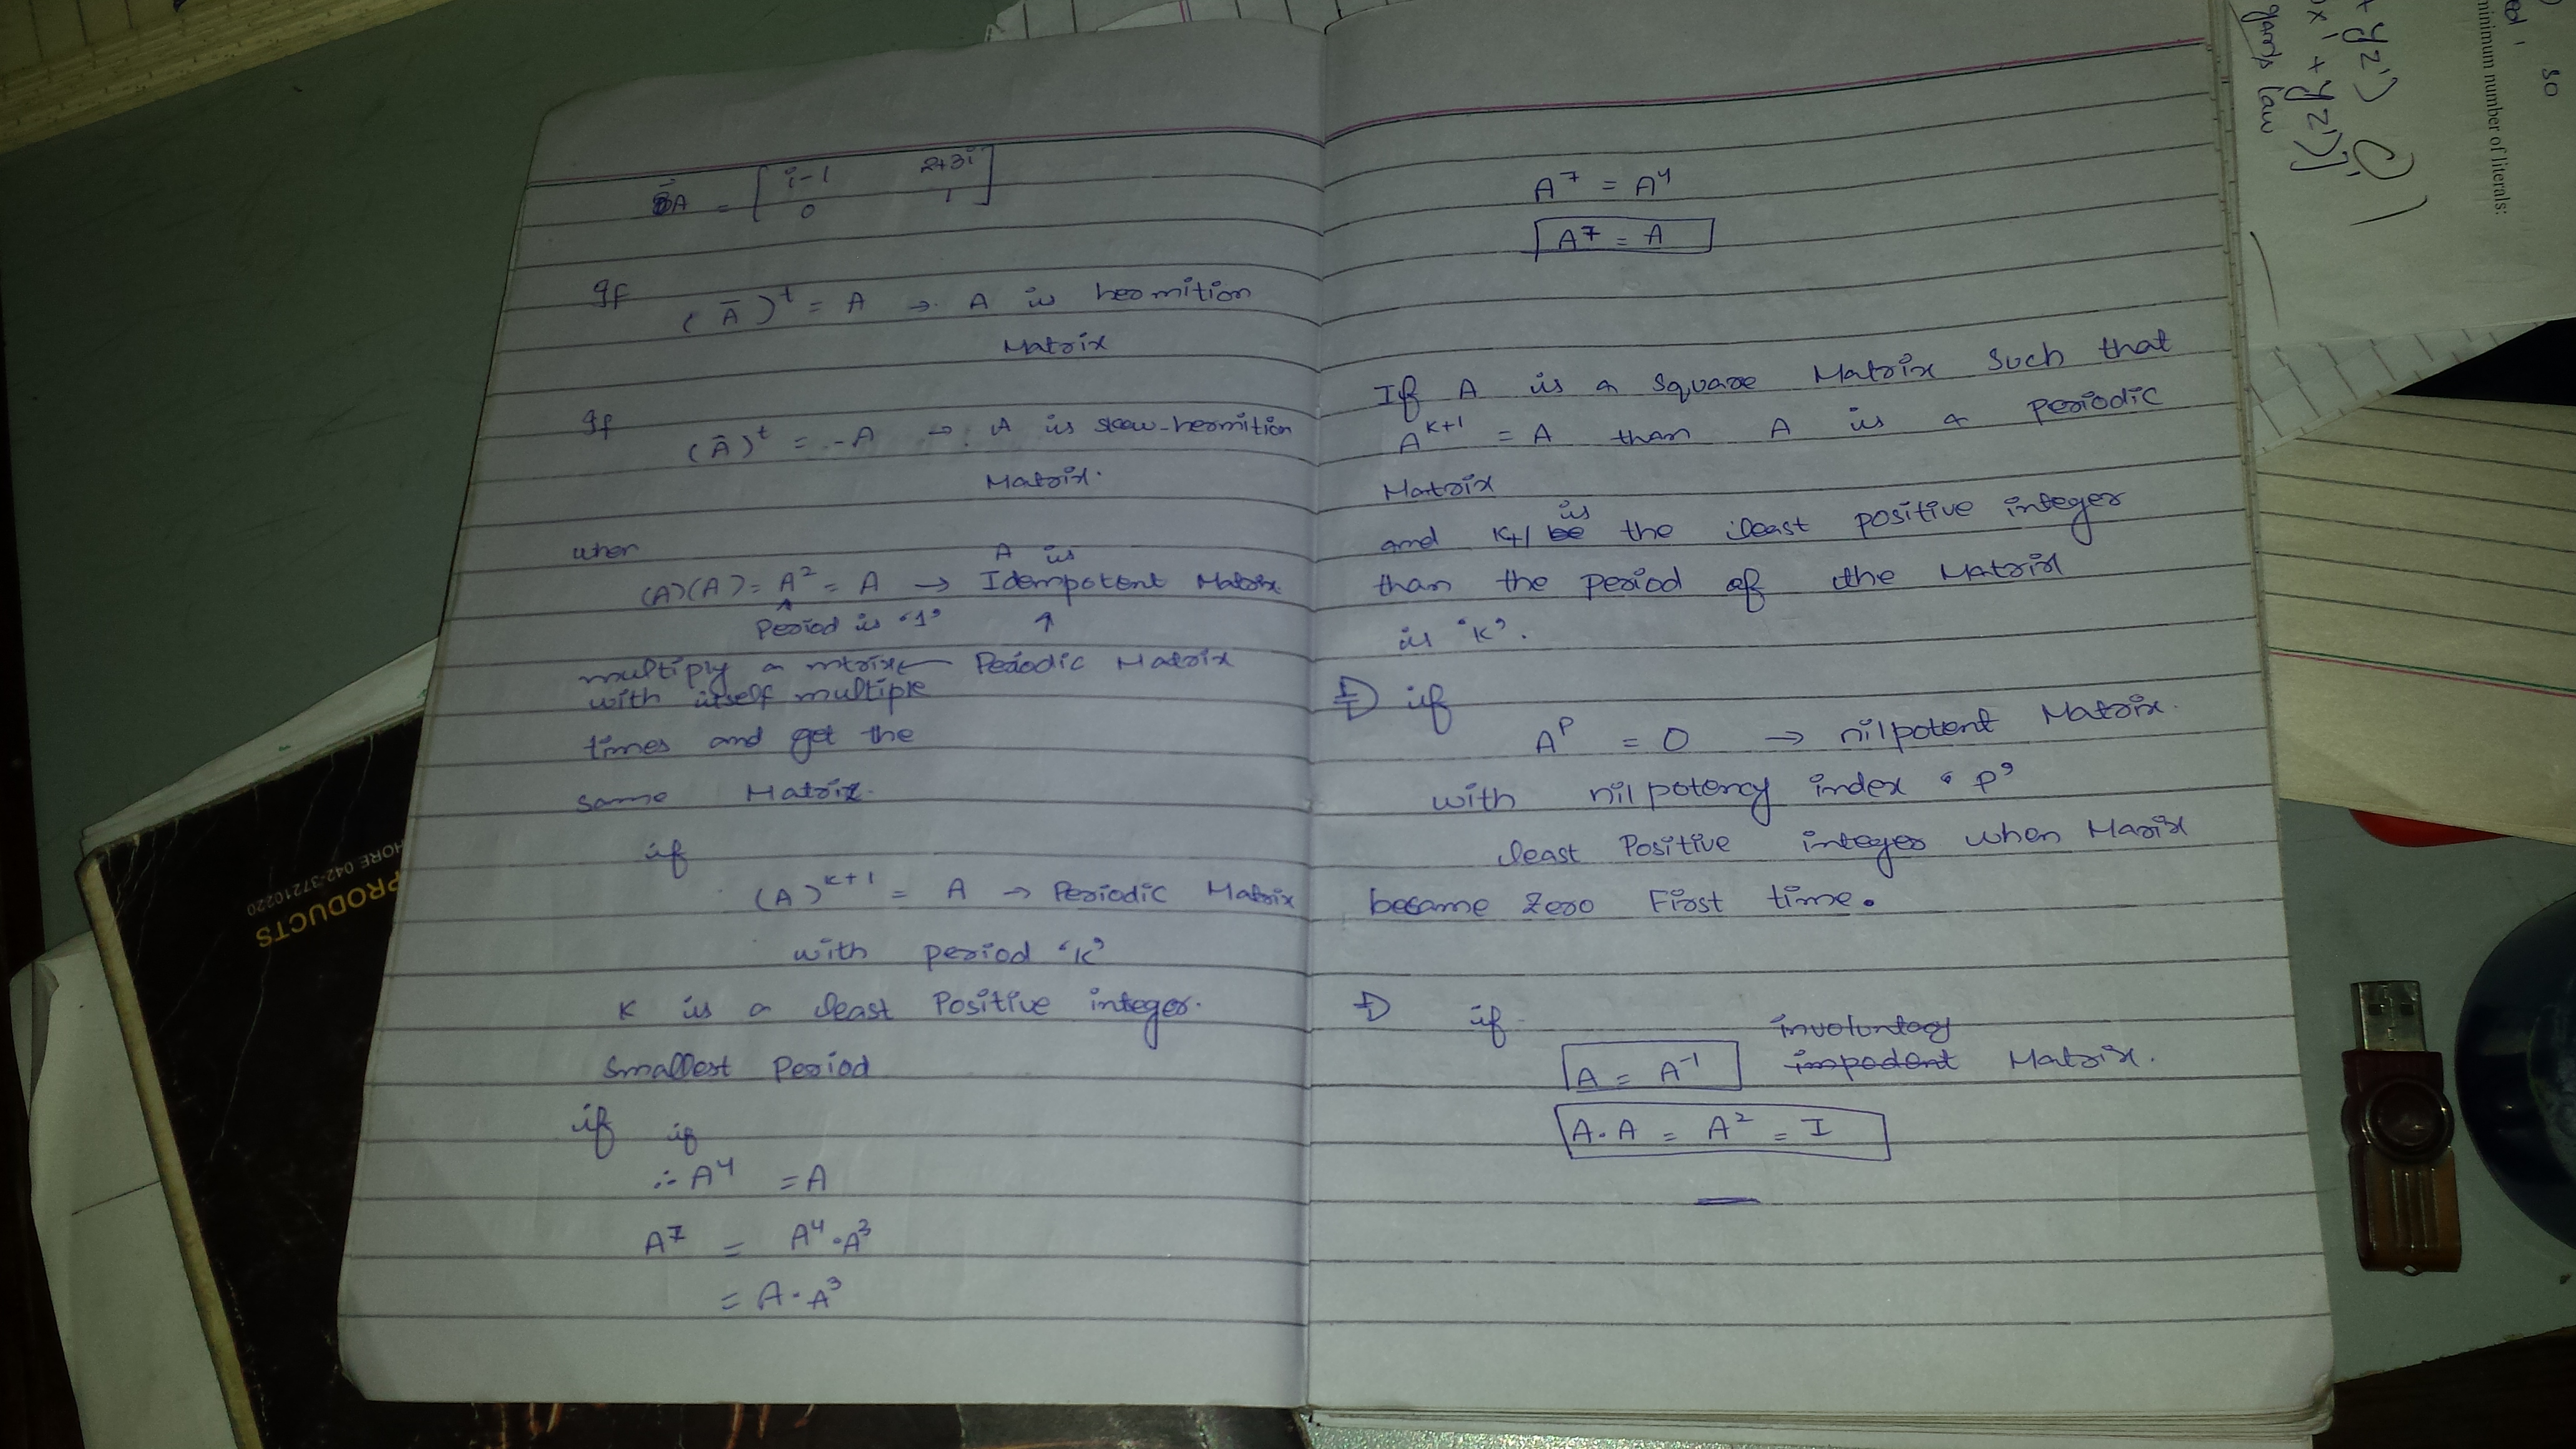 A = [ i-1 2+3i
0 1 ]
If
( Ā )^t = A → A is hermition
Matrix
If
(Ā)^t = -A → A is skew-hermition
Matrix.
when
A is
(A)(A) = A² = A → Idempotent Matrix
Period is '1' ↑
multiply a mtrix ← Peiodic Matrix
with itself multiple
times and get the
same Matrix.
if
(A)^k+1 = A → Periodic Matrix
with period 'K'
K is a least Positive integer.
Smallest Period
if if
∴ A⁴ = A
A⁷ = A⁴·A³
= A·A³
A⁷ = A⁴
A⁷ = A
If A is a square Matrix Such that
A^k+1 = A than A is a periodic
Matrix
is
and K+1 be the least positive integer
than the period of the Matrix
is 'K'.
if
A^p = 0 → nilpotent Matrix.
with nilpotency index 'P'
least Positive integer when Marix
became Zero First time.
if
involuntary
A = A⁻¹ impodent Matrix.
A.A = A² = I
PRODUCTS
HORE 042-37210220
so
ed,
minimum number of literals:
+ yz')
x' + yz')]'
gan's law